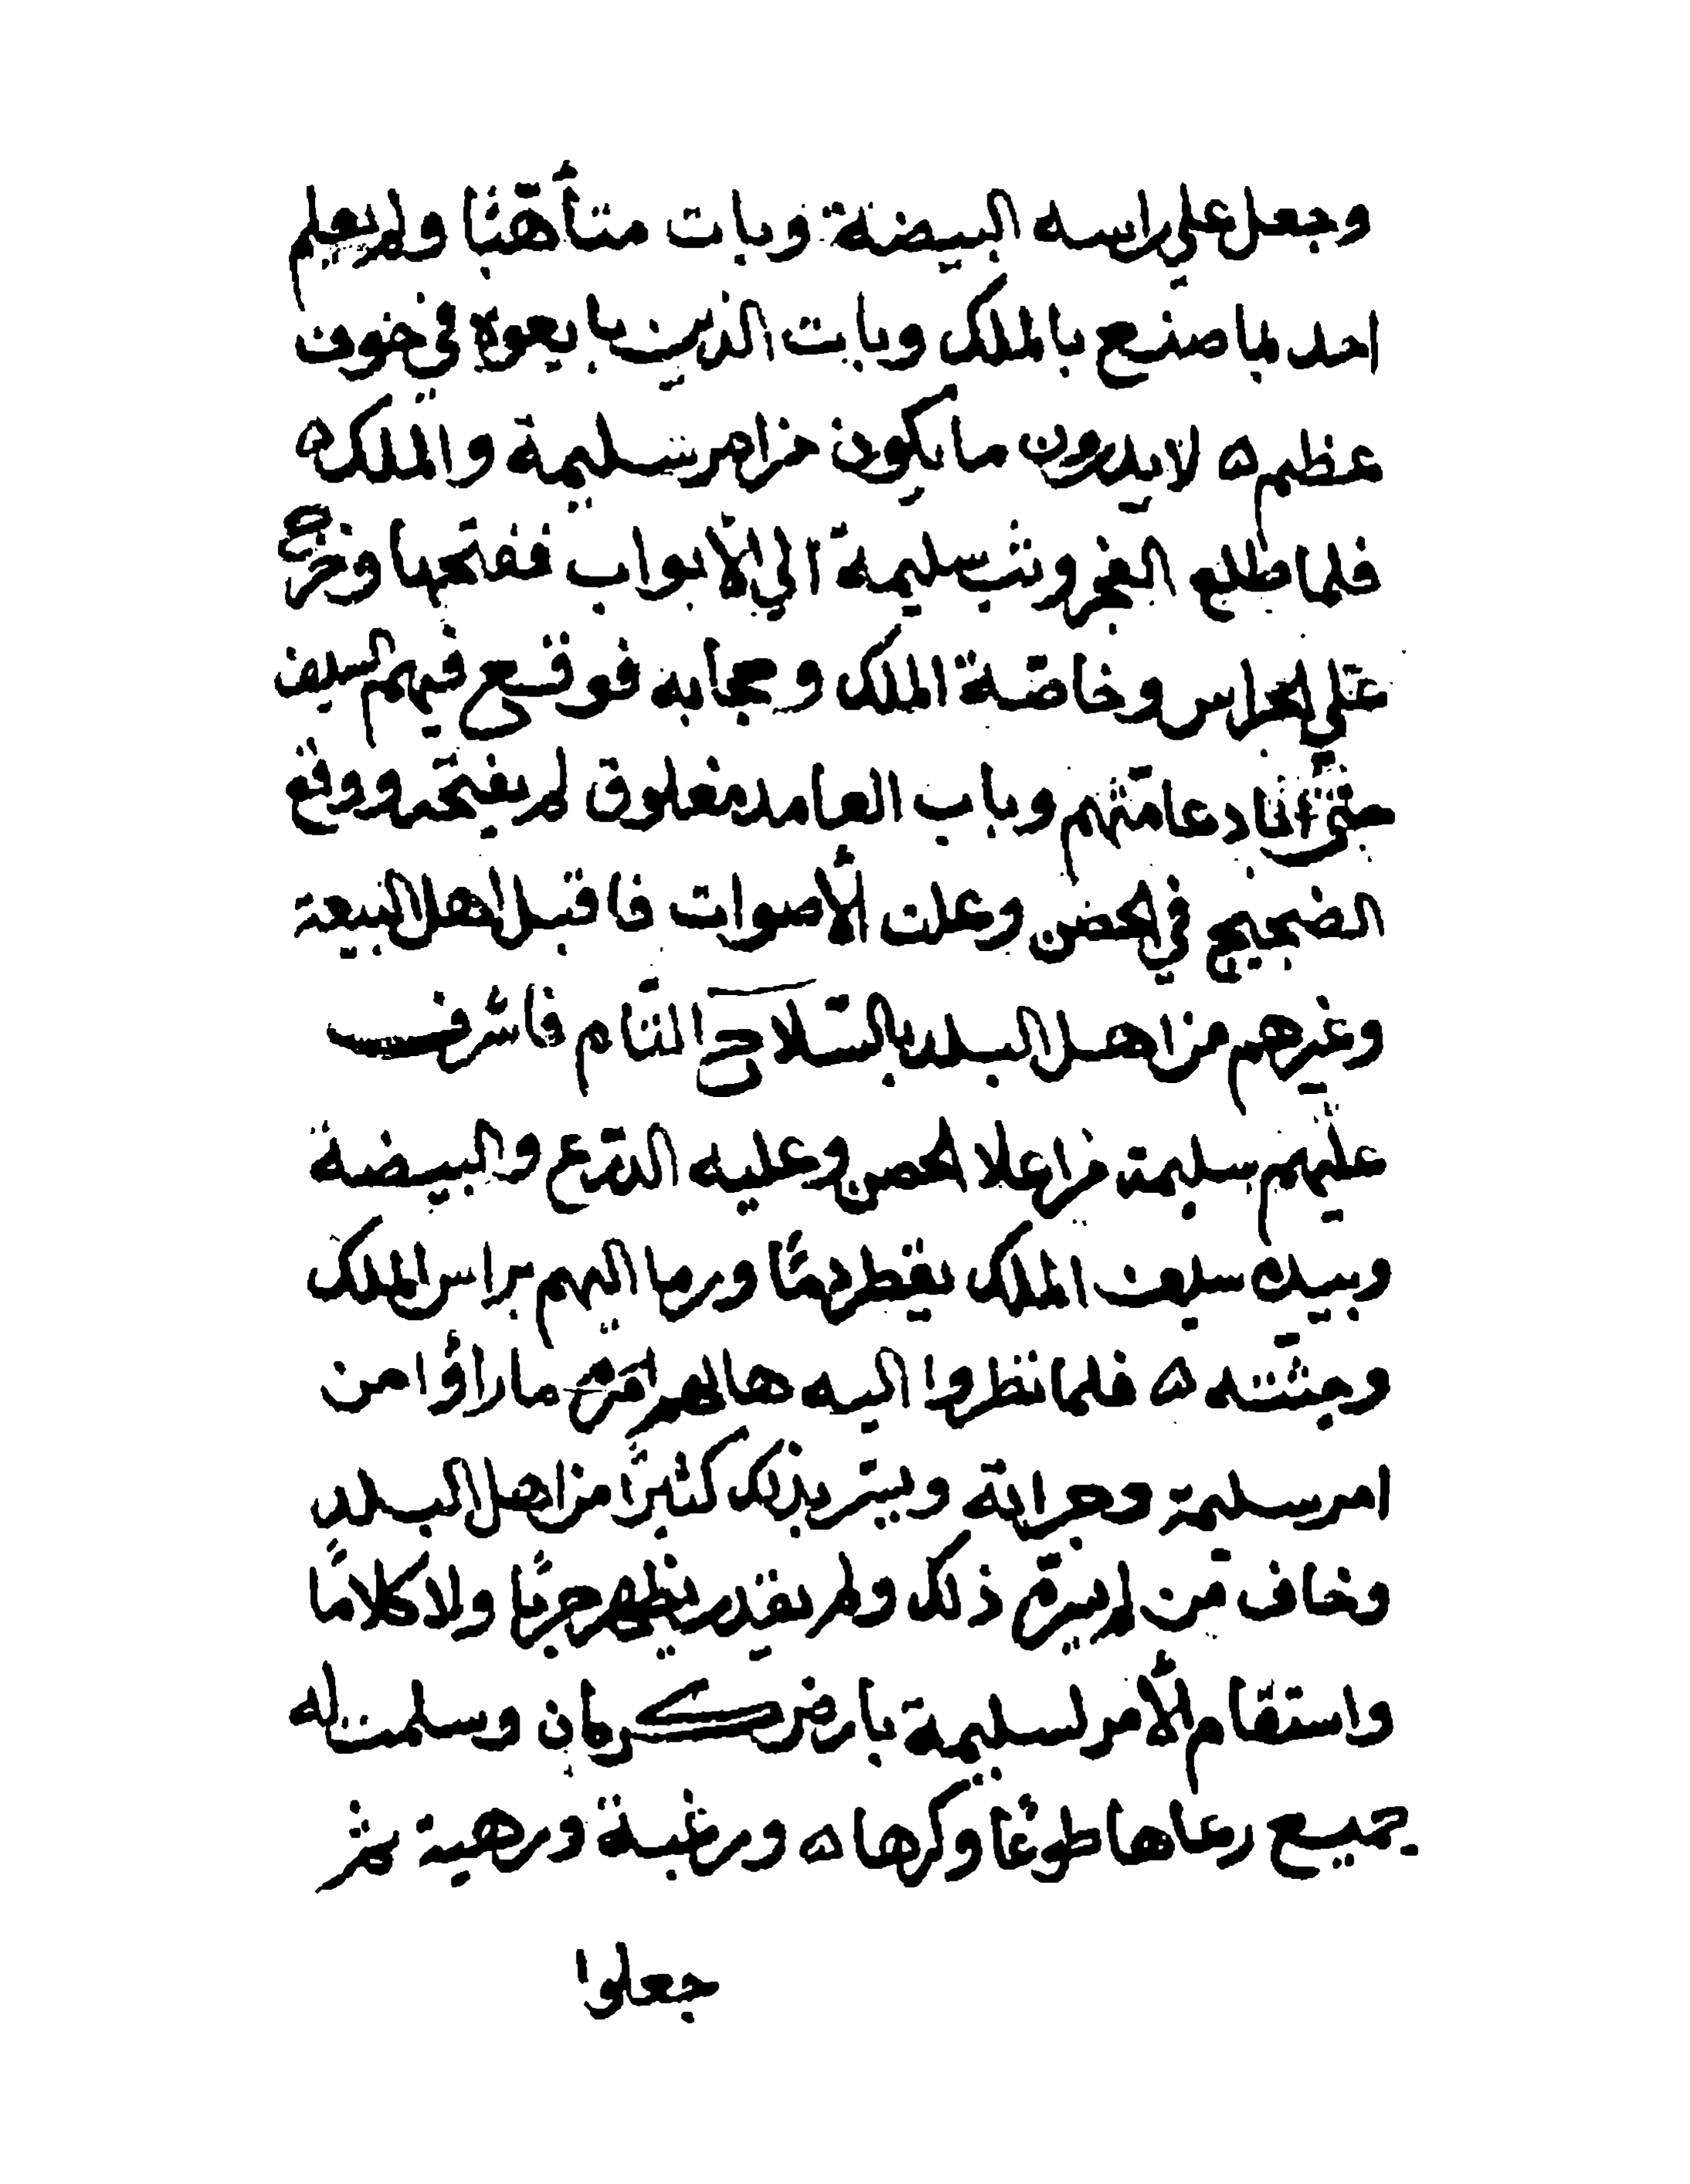 وجعل على راسه البيضة وبات متأهّبًا ولم يعلم
احد بما صنع بالملك وبات الذين بايعوه في خوف
عظيم ه لا يدرون ما يكون من امر سليمة والملك ه
فلما طلع الفجر وثب سليمة الي الأبواب ففتحها وخرج
على الحراس وخاصّة الملك وحجابه فوقع فيهم السيف
حتى أباد عامتهم وباب العامه مغلوق لم يفتحه ووقع
الضجيج في الحصن وعلت الأصوات فاقبل اهل البيعة
وغيرهم من اهل البلد بالسّلاح التّام فاشرف
عليهم سليمة من اعلا الحصن وعليه الدّرع والبيضة
وبيده سيف الملك يقطر دمًا ورما اليهم براس الملك
وجثّته ه فلما نظروا اليه هالهم امره ما راؤا من
امر سليمة وجرايته وسر بذلك كثيرًا من اهل البلد
وخاف من لم يسره ذلك ولم يقدر يظهر حربًا ولا كلامًا
واستقام الأمر لسليمة بارض كرمان وسلمت له
جميع رعاها طوعًا وكرها ه ورغبة ورهبة ثم
جعلوا